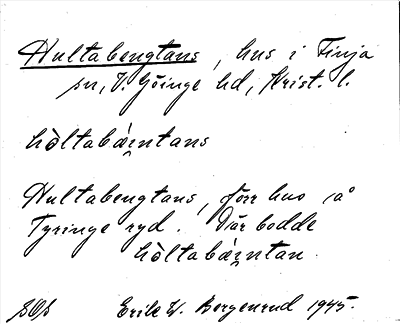 Hultabengtans, hus i Finja
sn, V. Göinge hd, Krist. l.
hòltabæ̀ntans
Hultabengtans, förr hus på
Tyringe ryd. Där bodde
hòltabæ̀ntan.
Erik W. Bergenrud 1945.